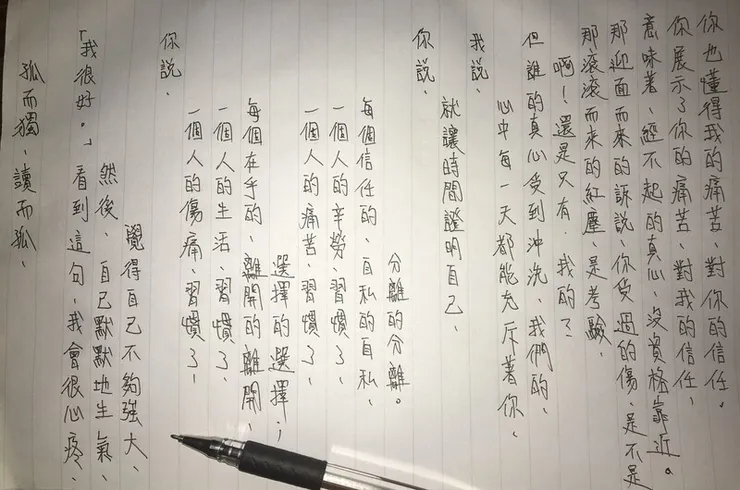 你也懂得我的痛苦、對你的信任。
你展示了你的痛苦、對我的信任、
意味著、經不起的真心、沒資格靠近。
那迎面而來的訴說、你受過的傷、是不是
那滾滾而來的紅塵、是考驗、
啊！還是只有、我的了、
但誰的真心受到沖洗、我們的、
心中每一天都能充斥著你、
我說、
就讓時間證明自己、
你說、
分離的分離。
每個信任的、自私的自私、
一個人的辛勞、習慣了、
一個人的痛苦、習慣了、
選擇的選擇；
每個在手的、離開的離開、
一個人的生活、習慣了、
一個人的傷痛、習慣了、
你說、
覺得自己不夠強大、
然後、自己默默地生氣、
「我很好。」看到這句、我會很心疼、
孤而獨、讀而孤、